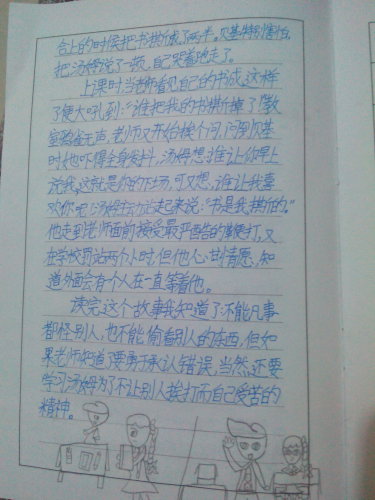 合上的时候把书撕成了两半。贝基特别害怕,
把汤姆说了一顿,自己哭着跑走了。
上课时,当老师看见自己的书成这样
了便大吼到:“谁把我的书撕掉了!”教
室鸦雀无声,老师又开始挨个问,问到贝基
时,她吓得全身发抖,汤姆想:谁让你早上
说我,这就是你的下场,可又想,谁让我喜
欢你呢!汤姆主动站起来说:“书是我撕的。”
他走到老师面前接受最严酷的鞭打,又
在学校罚站两个小时,但他心甘情愿,知
道外面会有个人在一直等着他。
读完这个故事我知道了:不能凡事
都怪别人,也不能偷看别人的东西,但如
果老师知道了要勇于承认错误,当然,还要
学习汤姆为了不让别人挨打而自己受苦的
精神。